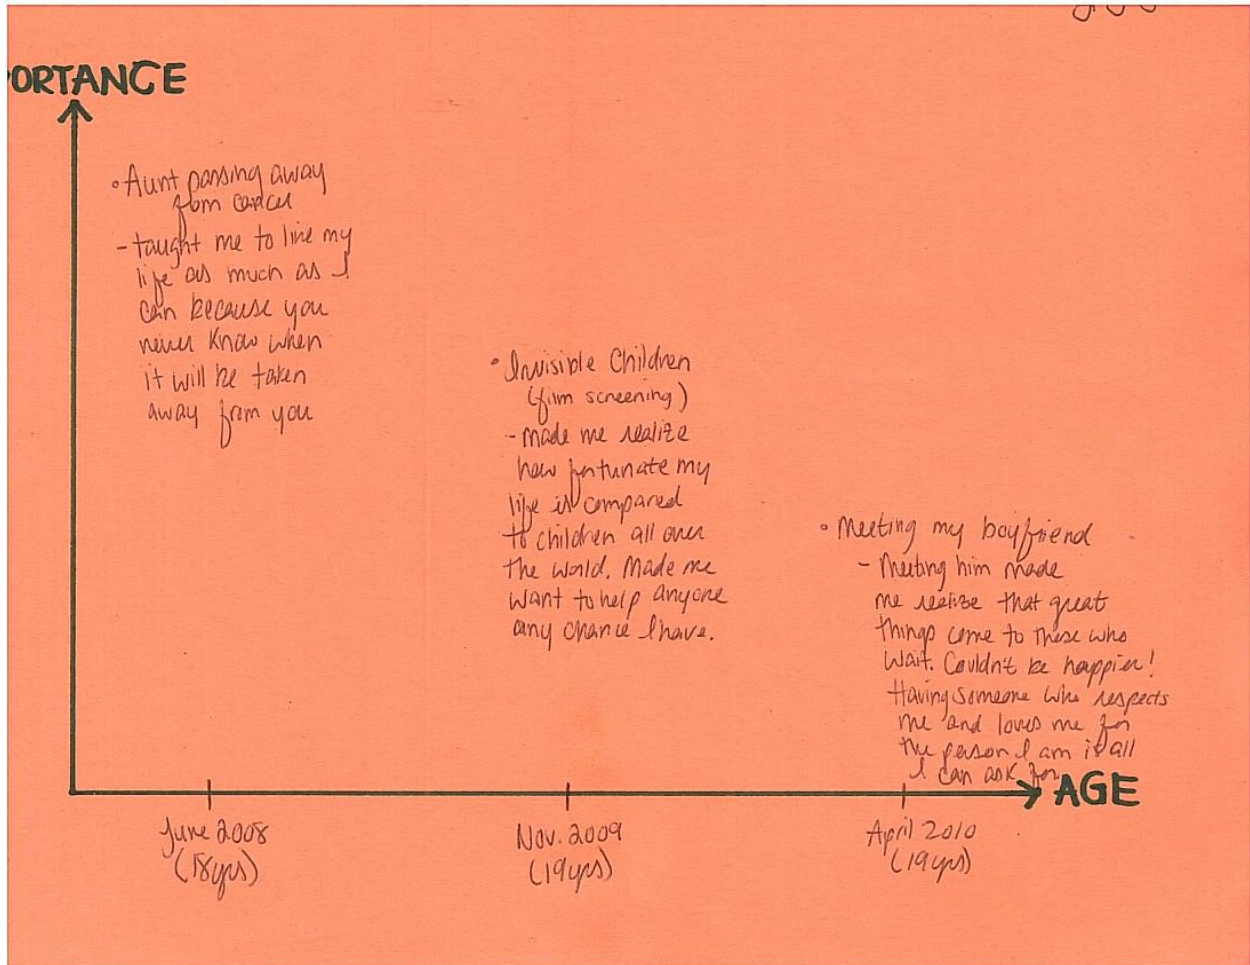 ORTANCE
• Aunt passing away
from cancer
- taught me to live my
life as much as I
can because you
never know when
it will be taken
away from you
• Invisible Children
(film screening)
- made me realize
how fortunate my
life is compared
to children all over
the world. Made me
want to help anyone
any chance I have.
• Meeting my boyfriend
- Meeting him made
me realize that great
things come to those who
wait. Couldn't be happier!
Having someone who respects
me and loves me for
the person I am is all
I can ask for.
AGE
June 2008
(18yrs)
Nov. 2009
(19yrs)
April 2010
(19yrs)